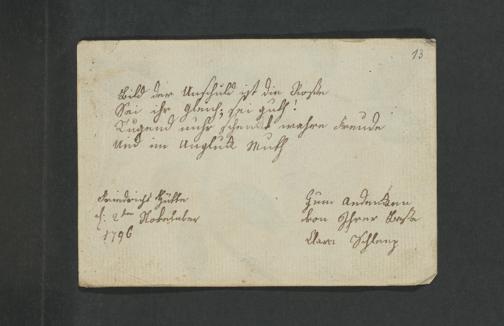 13
Bild der Unschuld ist die Rose
Sei ihr gleich, sei guth!
Tugend nuhr schenckt wahre Freude
Und im Unglük Muth
Friedrichs Hütte
d: 2ten November
1796
Zum Andencken
von Ihrer Base
Clara